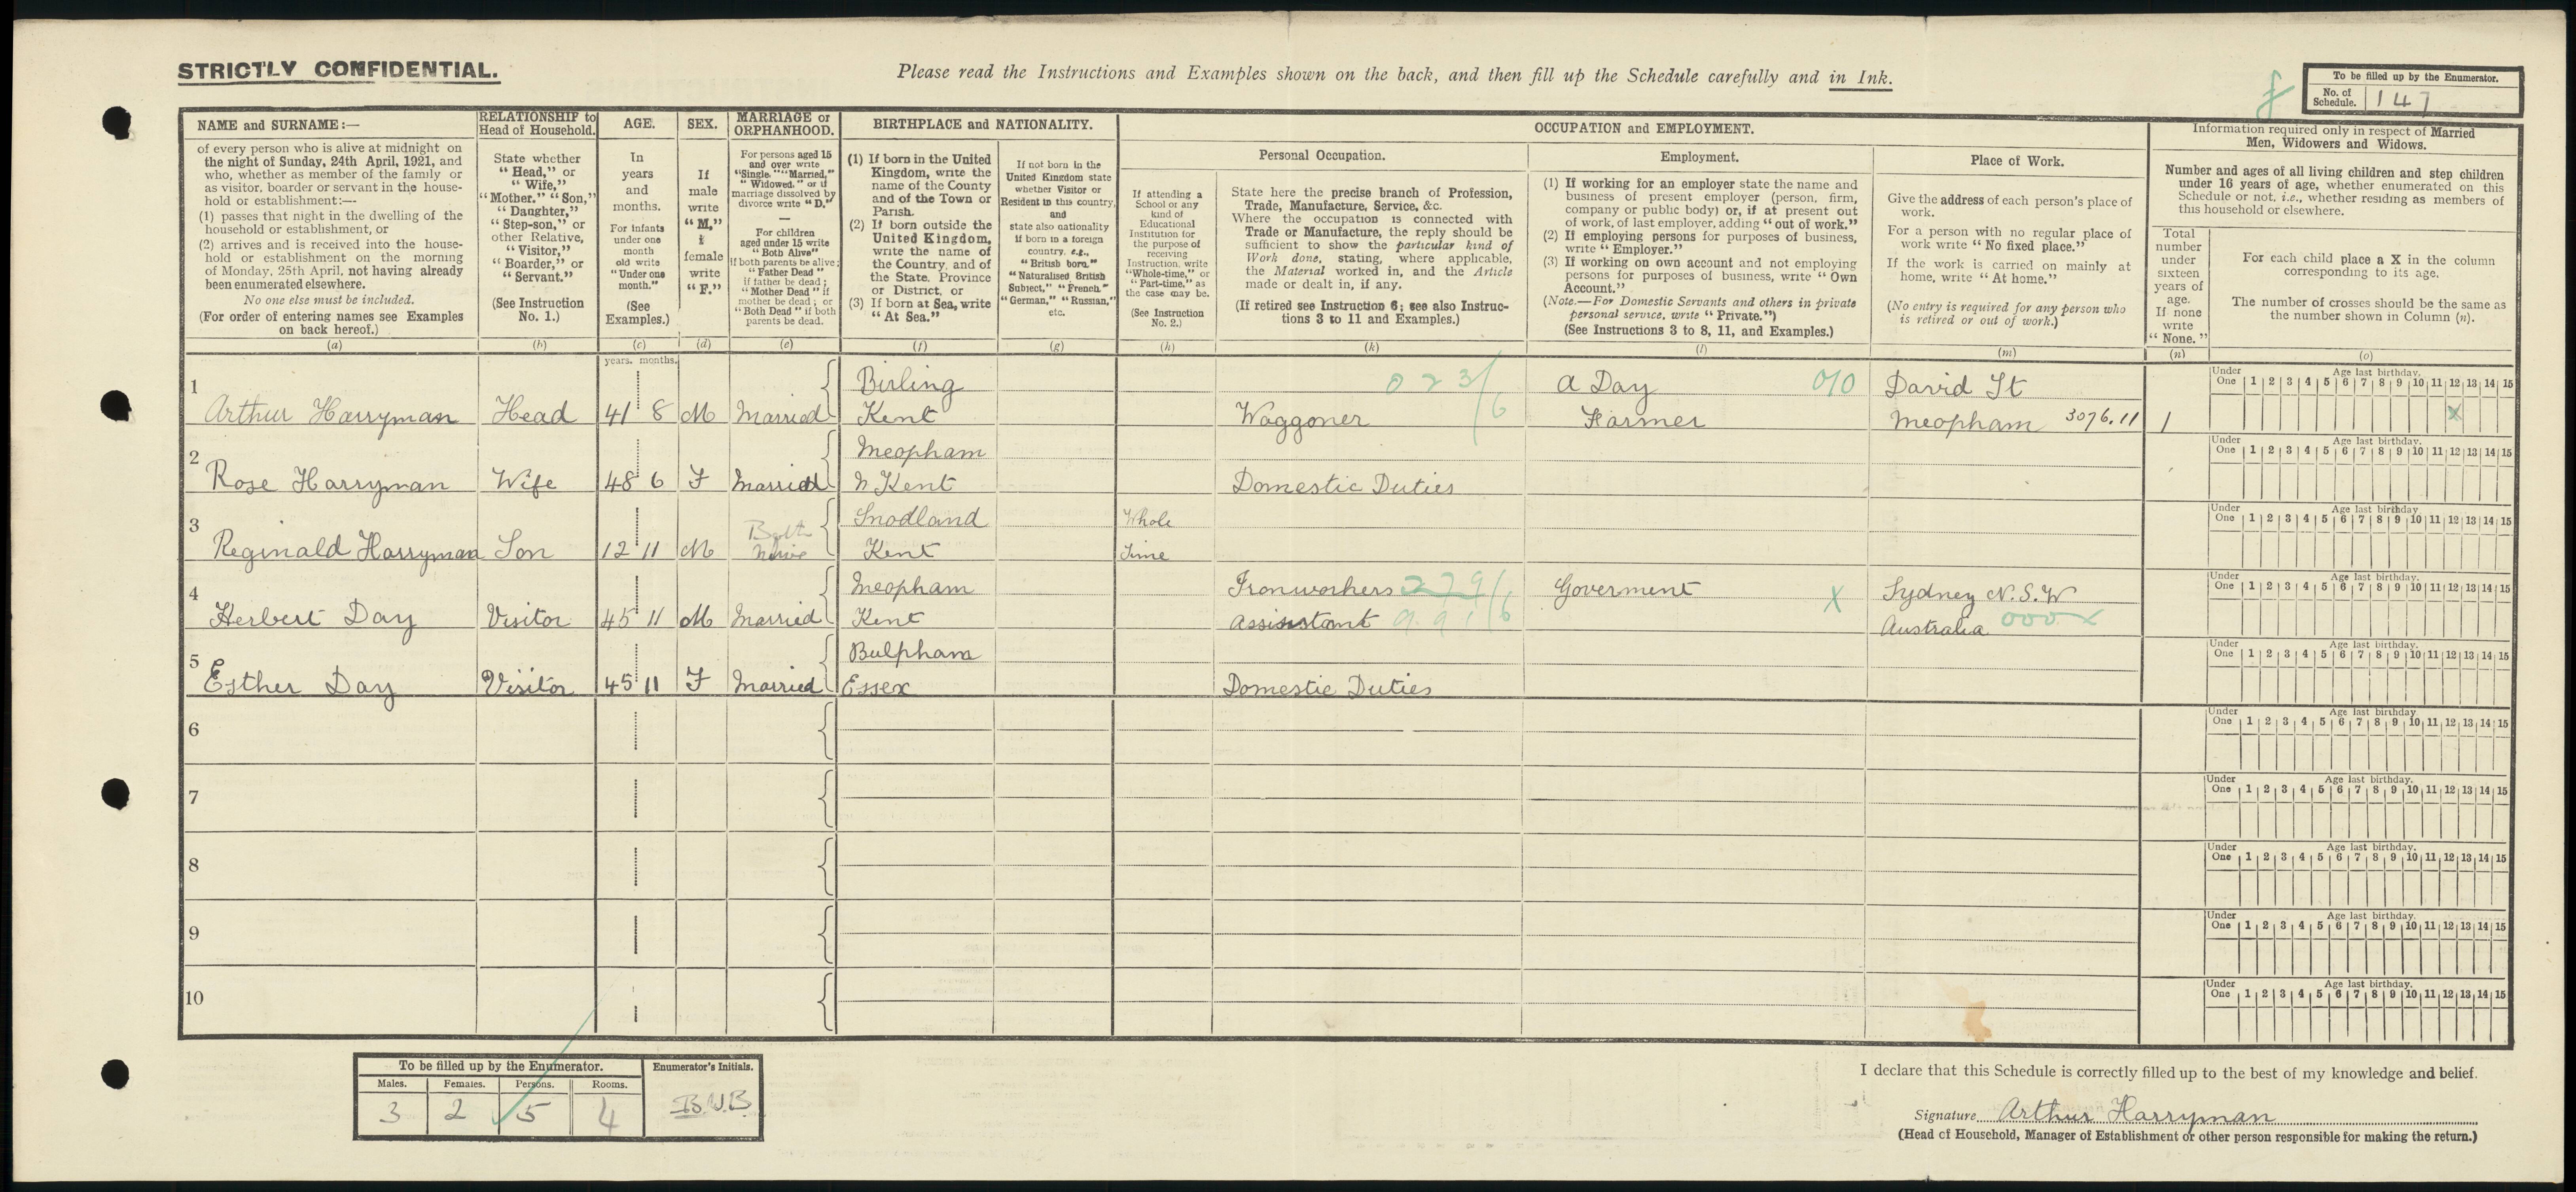 STRICTLY CONFIDENTIAL.
Please read the Instructions and Examples shown on the back, and then fill up the Schedule carefully and in Ink.
To be filled up by the Enumerator.
No. of Schedule. 147
NAME and SURNAME:—
of every person who is alive at midnight on
the night of Sunday, 24th April, 1921, and
who, whether as member of the family or
as visitor, boarder or servant in the house-
hold or establishment:—
(1) passes that night in the dwelling of the
household or establishment, or
(2) arrives and is received into the house-
hold or establishment on the morning
of Monday, 25th April, not having already
been enumerated elsewhere.
No one else must be included.
(For order of entering names see Examples
on back hereof.)
(a)
RELATIONSHIP to
Head of Household.
State whether
"Head," or
"Wife,"
"Mother." "Son,"
"Daughter,"
"Step-son," or
other Relative,
"Visitor,"
"Boarder," or
"Servant."
(See Instruction
No. 1.)
(b)
AGE.
In
years
and
months.
For infants
under one
month
old write
"Under one
month."
(See
Examples.)
(c)
SEX.
If
male
write
"M,"
if
female
write
"F."
(d)
MARRIAGE or
ORPHANHOOD.
For persons aged 15
and over write
"Single." "Married,"
"Widowed," or if
marriage dissolved by
divorce write "D."
—
For children
aged under 15 write
"Both Alive"
if both parents be alive;
"Father Dead"
if father be dead;
"Mother Dead" if
mother be dead; or
"Both Dead" if both
parents be dead.
(e)
BIRTHPLACE and NATIONALITY.
(1) If born in the United
Kingdom, write the
name of the County
and of the Town or
Parish.
(2) If born outside the
United Kingdom,
write the name of
the Country, and of
the State, Province
or District, or
(3) If born at Sea, write
"At Sea."
(f)
If not born in the
United Kingdom state
whether Visitor or
Resident in this country,
and
state also nationality
if born in a foreign
country, e.g.,
"British born."
"Naturalised British
Subject," "French."
"German," "Russian,"
etc.
(g)
OCCUPATION and EMPLOYMENT.
Personal Occupation.
If attending a
School or any
kind of
Educational
Institution for
the purpose of
receiving
Instruction, write
"Whole-time," or
"Part-time," as
the case may be.
(See Instruction
No. 2.)
(h)
State here the precise branch of Profession,
Trade, Manufacture, Service, &c.
Where the occupation is connected with
Trade or Manufacture, the reply should be
sufficient to show the particular kind of
Work done, stating, where applicable,
the Material worked in, and the Article
made or dealt in, if any.
(If retired see Instruction 6; see also Instruc-
tions 3 to 11 and Examples.)
(k)
Employment.
(1) If working for an employer state the name and
business of present employer (person, firm,
company or public body) or, if at present out
of work, of last employer, adding "out of work."
(2) If employing persons for purposes of business,
write "Employer."
(3) If working on own account and not employing
persons for purposes of business, write "Own
Account."
(Note.—For Domestic Servants and others in private
personal service, write "Private.")
(See Instructions 3 to 8, 11, and Examples.)
(l)
Place of Work.
Give the address of each person's place of
work.
For a person with no regular place of
work write "No fixed place."
If the work is carried on mainly at
home, write "At home."
(No entry is required for any person who
is retired or out of work.)
(m)
Information required only in respect of Married
Men, Widowers and Widows.
Number and ages of all living children and step children
under 16 years of age, whether enumerated on this
Schedule or not, i.e., whether residing as members of
this household or elsewhere.
Total
number
under
sixteen
years of
age.
If none
write
"None."
(n)
For each child place a X in the column
corresponding to its age.
The number of crosses should be the same as
the number shown in Column (n).
(o)
years. months.
1 Birling 0 2 3/6 A Day 010 David St
Arthur Harryman Head 41 8 M Married Kent Waggoner Farmer Meopham 3076.11 1
Under One 1 2 3 4 5 6 7 8 9 10 11 12 13 14 15 Age last birthday.
X
2 Meopham
Rose Harryman Wife 48 6 F Married N Kent Domestic Duties
Under One 1 2 3 4 5 6 7 8 9 10 11 12 13 14 15 Age last birthday.
3 Both Snodland Whole
Reginald Harryman Son 12 11 M Kent Time
Under One 1 2 3 4 5 6 7 8 9 10 11 12 13 14 15 Age last birthday
4 Meopham Ironworkers 279/6 Goverment X Sydney N.S.W
Herbert Day Visitor 45 11 M Married Kent Assisstant 991/6 Australia 000
Under One 1 2 3 4 5 6 7 8 9 10 11 12 13 14 15 Age last birthday.
5 Bulpham
Esther Day Visitor 45 11 F Married Essex Domestic Duties
Under One 1 2 3 4 5 6 7 8 9 10 11 12 13 14 15 Age last birthday.
6
Under One 1 2 3 4 5 6 7 8 9 10 11 12 13 14 15 Age last birthday
7
Under One 1 2 3 4 5 6 7 8 9 10 11 12 13 14 15 Age last birthday.
8
Under One 1 2 3 4 5 6 7 8 9 10 11 12 13 14 15 Age last birthday.
9
Under One 1 2 3 4 5 6 7 8 9 10 11 12 13 14 15 Age last birthday.
10
Under One 1 2 3 4 5 6 7 8 9 10 11 12 13 14 15 Age last birthday.
To be filled up by the Enumerator.
Males. Females. Persons. Rooms.
3 2 5 4
Enumerator's Initials.
B.W.B.
I declare that this Schedule is correctly filled up to the best of my knowledge and belief.
Signature Arthur Harryman
(Head of Household, Manager of Establishment or other person responsible for making the return.)